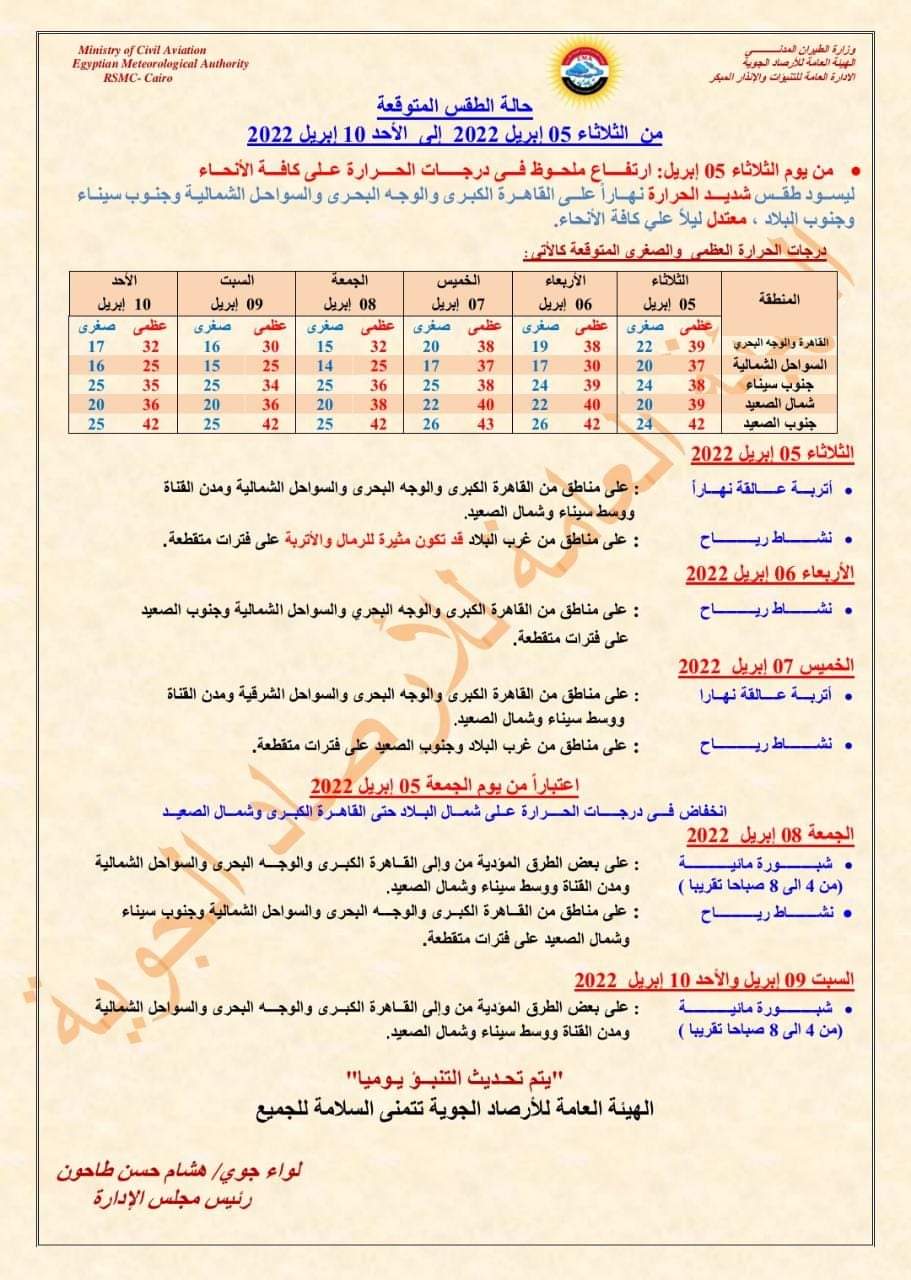 Ministry of Civil Aviation
Egyptian Meteorological Authority
RSMC- Cairo
وزارة الطيران المدنـــــــي
الهيئة العامة للأرصاد الجوية
الادارة العامة للتنبؤات والإنذار المبكر
حالة الطقس المتوقعة
من الثلاثاء 05 إبريل 2022 إلى الأحد 10 إبريل 2022
• من يوم الثلاثاء 05 إبريل: ارتفــاع ملحـوظ فـى درجـات الحـرارة علـى كافـة الأنحـاء
ليسـود طقـس شديـد الحرارة نهـاراً علـى القاهـرة الكبـرى والوجـه البحـرى والسواحـل الشماليـة وجنـوب سينـاء
وجنوب البلاد ، معتدل ليلاً علي كافة الأنحاء.
درجات الحرارة العظمى والصغرى المتوقعة كالأتي:
المنطقة الثلاثاء الأربعاء الخميس الجمعة السبت الأحد
05 إبريل 06 إبريل 07 إبريل 08 إبريل 09 إبريل 10 إبريل
عظمى صغرى عظمى صغرى عظمى صغرى عظمى صغرى عظمى صغرى عظمى صغرى
القاهرة والوجه البحري 39 22 38 19 38 20 32 15 30 16 32 17
السواحل الشمالية 37 20 30 17 37 17 25 14 25 15 25 16
جنوب سيناء 38 24 39 24 38 25 36 25 34 25 35 25
شمال الصعيد 39 20 40 22 40 22 38 20 36 20 36 20
جنوب الصعيد 42 24 42 26 43 26 42 25 42 25 42 25
الثلاثاء 05 إبريل 2022
• أتربـــة عــــالقة نهــاراً : على مناطق من القاهرة الكبرى والوجه البحرى والسواحل الشمالية ومدن القناة
ووسط سيناء وشمال الصعيد.
• نشـــاط ريـــــــاح : على مناطق من غرب البلاد قد تكون مثيرة للرمال والأتربة على فترات متقطعة.
الأربعاء 06 إبريل 2022
• نشـــاط ريـــــــاح : على مناطق من القاهرة الكبرى والوجه البحري والسواحل الشمالية وجنوب الصعيد
على فترات متقطعة.
الخميس 07 إبريل 2022
• أتربـــة عــــالقة نهـارا : على مناطق من القاهرة الكبرى والوجه البحرى والسواحل الشرقية ومدن القناة
ووسط سيناء وشمال الصعيد.
• نشـــاط ريـــــــاح : على مناطق من غرب البلاد وجنوب الصعيد على فترات متقطعة.
اعتباراً من يوم الجمعة 05 إبريل 2022
انخفاض فــى درجــات الحــرارة علـى شمـال البـلاد حتى القاهـرة الكبـرى وشمـال الصعيـد
الجمعة 08 إبريل 2022
• شبـــــورة مائيـــــــة : على بعض الطرق المؤدية من وإلى القــاهرة الكبـرى والوجــه البحرى والسواحل الشمالية
(من 4 الى 8 صباحا تقريبا ) ومدن القناة ووسط سيناء وشمال الصعيد.
• نشـــاط ريـــــــاح : على مناطق من القــاهرة الكبــرى والوجـــه البحرى والسواحل الشمالية وجنوب سيناء
وشمال الصعيد على فترات متقطعة.
السبت 09 إبريل والأحد 10 إبريل 2022
• شبـــــورة مائيـــــــة : على بعض الطرق المؤدية من وإلى القــاهرة الكبـرى والوجــه البحرى والسواحل الشمالية
(من 4 الى 8 صباحا تقريبا ) ومدن القناة ووسط سيناء وشمال الصعيد.
"يتم تحـديث التنبــؤ يـوميا"
الهيئة العامة للأرصاد الجوية تتمنى السلامة للجميع
لواء جوي/ هشام حسن طاحون
رئيس مجلس الإدارة
الهيئة العامة للأرصاد الجوية